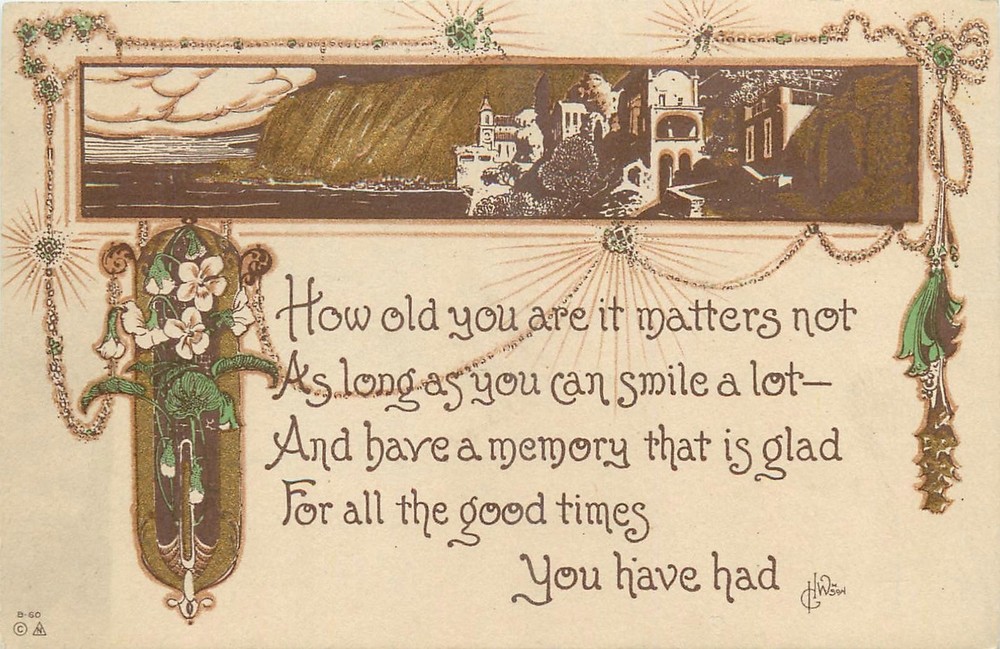 How old you are it matters not
As long as you can smile a lot—
And have a memory that is glad
For all the good times
You have had
B-60
©